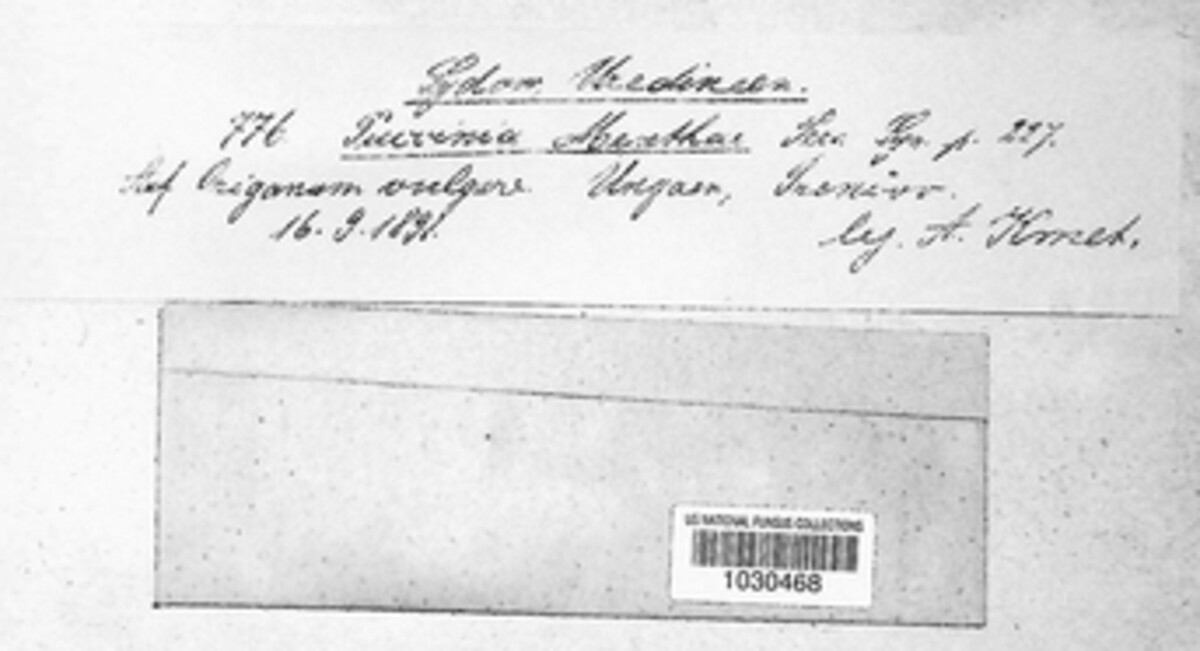 Sydow, Uredineen.
776. Puccinia Menthae Pers. Syn. p. 227.
Auf Origanum vulgare. Ungarn,
16. 9. 1891. leg. A. Kmet.
US NATIONAL FUNGUS COLLECTIONS
1030468